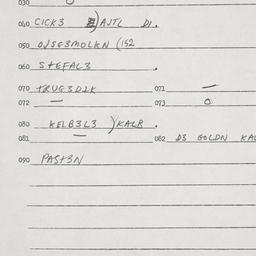 030
040 CICK3 )AJTL DI.
050 O/SG3MOLKN (152
060 S+EFAL3 .
070 TRUG3D2K 071 —
072 — 073 O
080 KELB3L3 )KALB .
081 — 082 D3 GOLDN KA
090 PAS+3N